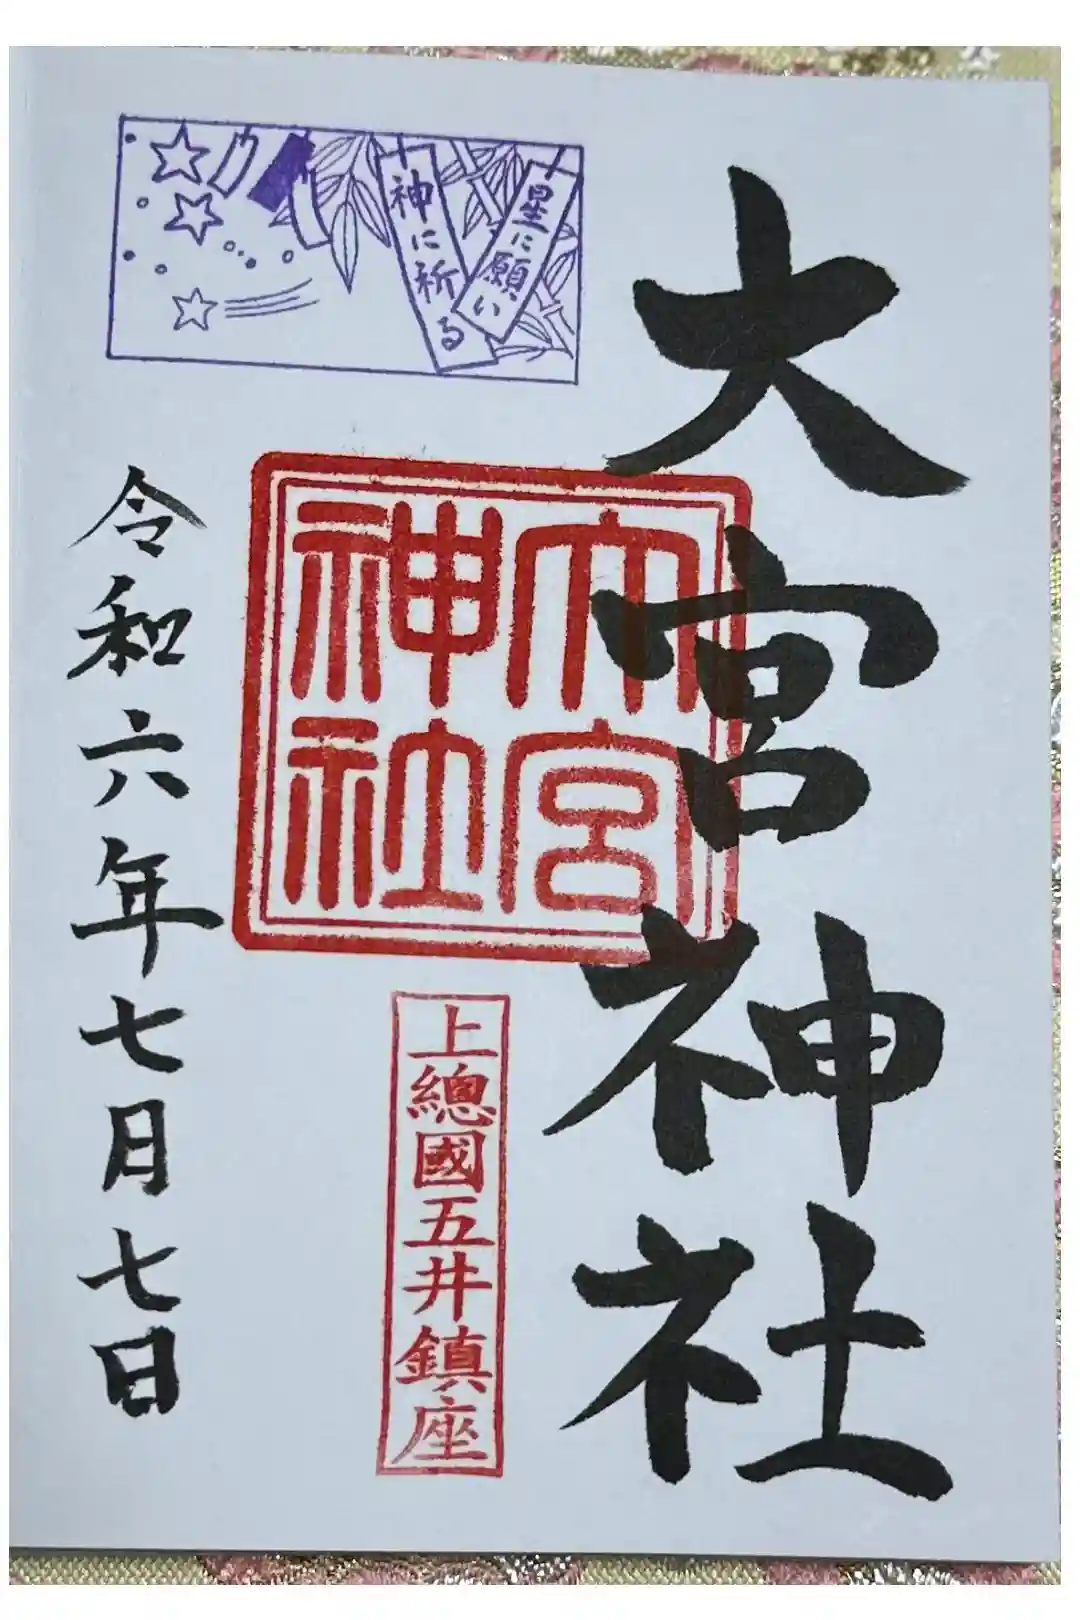 大宮神社
星に願い
神に祈る
大宮
神社
上總國五井鎮座
令和六年七月七日